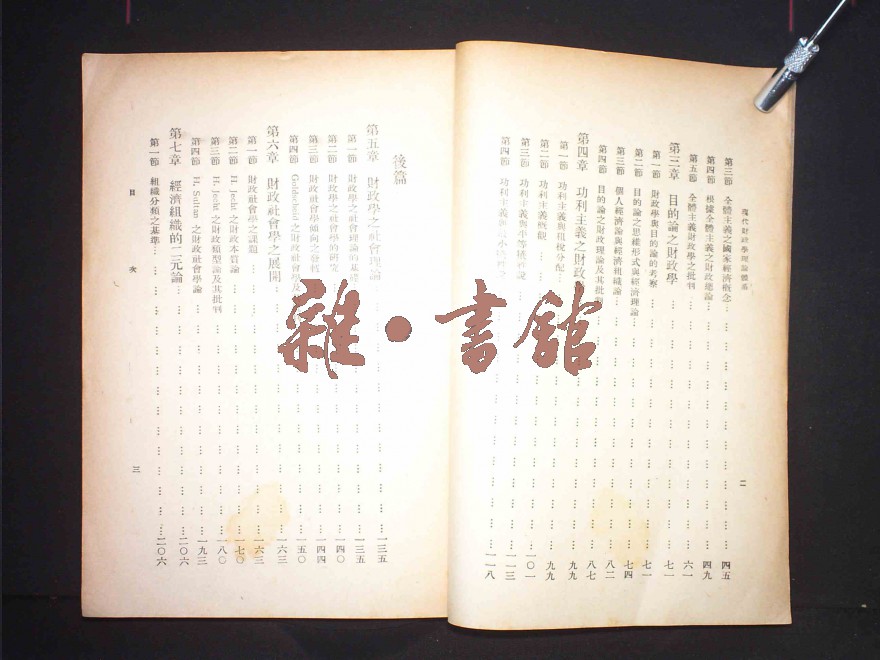 現代財政學理論體系
二
第三節 全體主義之國家經濟概念 四五
第四節 根據全體主義之財政總論 四九
第五節 全體主義財政學之批判 六一
第三章 目的論之財政學 七一
第一節 財政學與目的論的考察 七一
第二節 目的論之思維形式與經濟理論 七四
第三節 個人經濟論與經濟組織論 八二
第四節 目的論之財政理論及其批判 八七
第四章 功利主義之財政 九九
第一節 功利主義與租稅分配 九九
第二節 功利主義概觀 一〇一
第三節 功利主義與平等犧牲說 一一三
第四節 功利主義與最小犧牲說 一一八
後篇
第五章 財政學之社會理論 一三五
第一節 財政學之社會理論的基礎 一三五
第二節 財政學之社會學的研究 一四〇
第三節 財政社會學傾向之發教 一四四
第四節 Goldscheid 之財政社會學及 一五〇
第六章 財政社會學之展開 一六三
第一節 財政社會學之課題 一六三
第二節 H. Jecht 之財政本質論 一七〇
第三節 H. Jecht 之財政類型論及其批判 一八〇
第四節 H. Sultan 之財政社會學論 一九三
第七章 經濟組織的二元論 二〇六
第一節 組織分類之基準 二〇六
目 次
三
雜·書舘